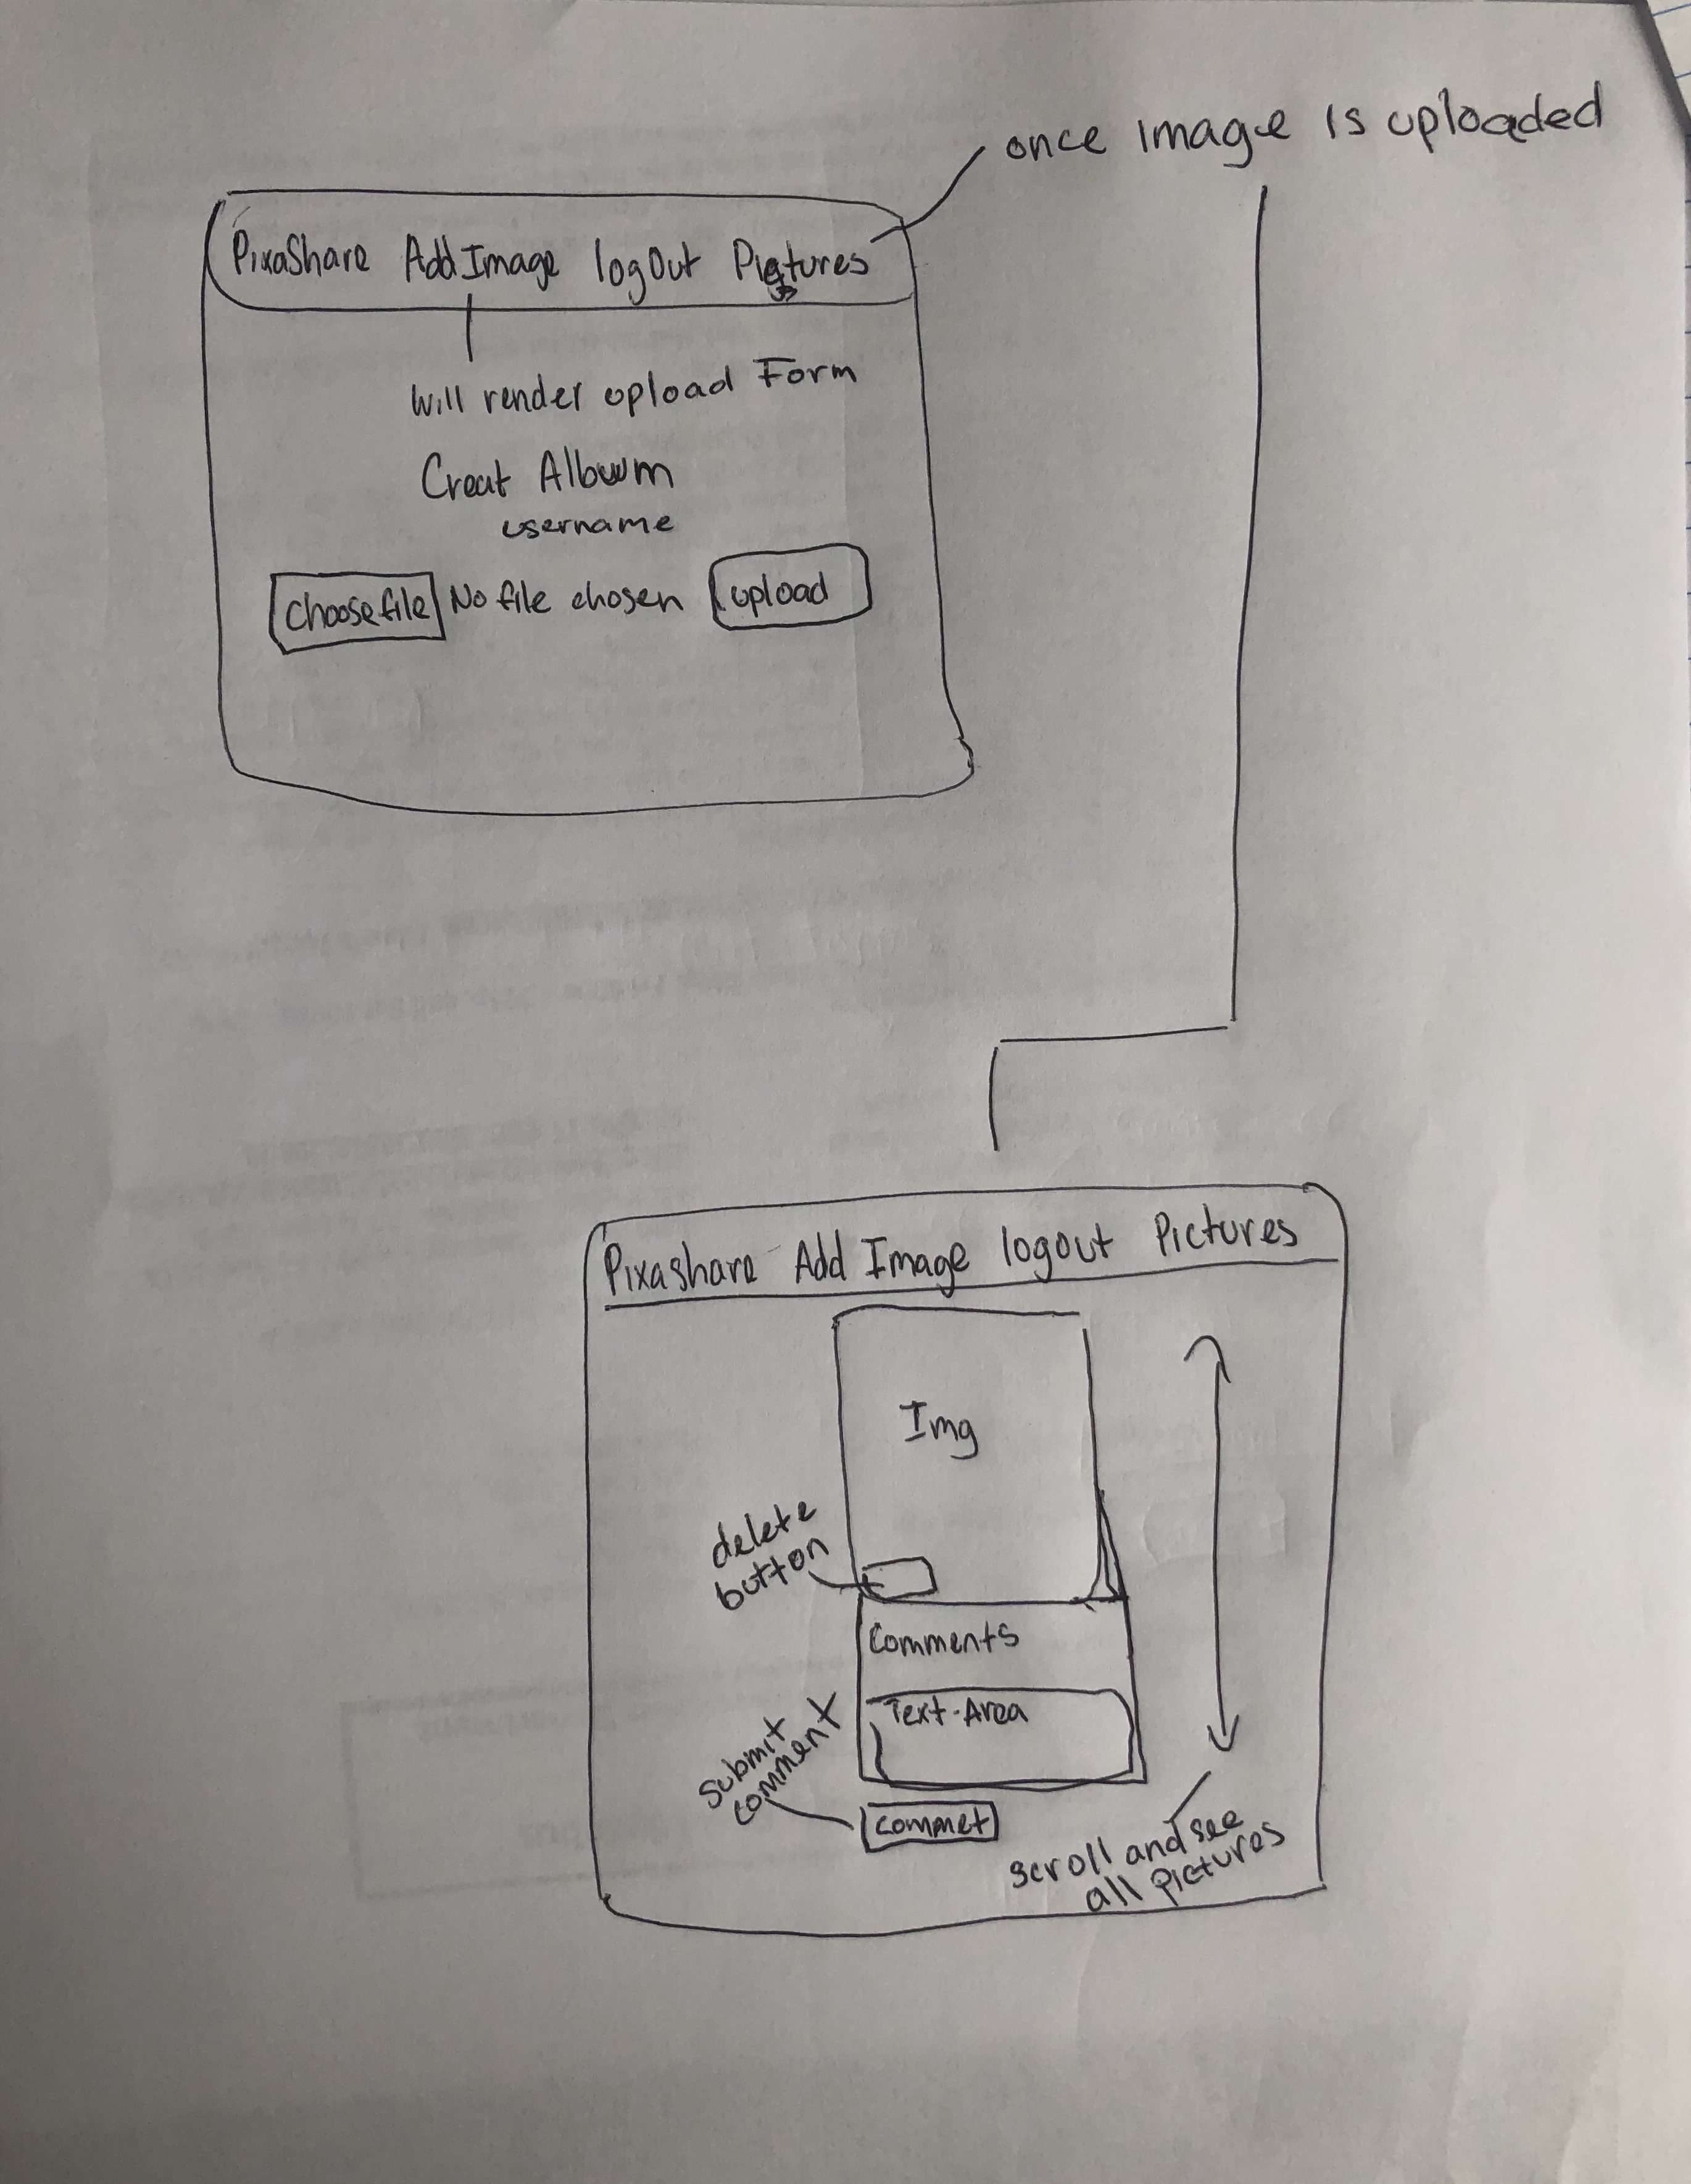 once image is uploaded
PixaShare AddImage logOut Pictures
will render upload Form
Creat Album
username
choosefile No file chosen upload
Pixashare Add Image logout Pictures
Img
delete
button
Comments
Text-Area
submit
comment
Commet
scroll and see
all pictures